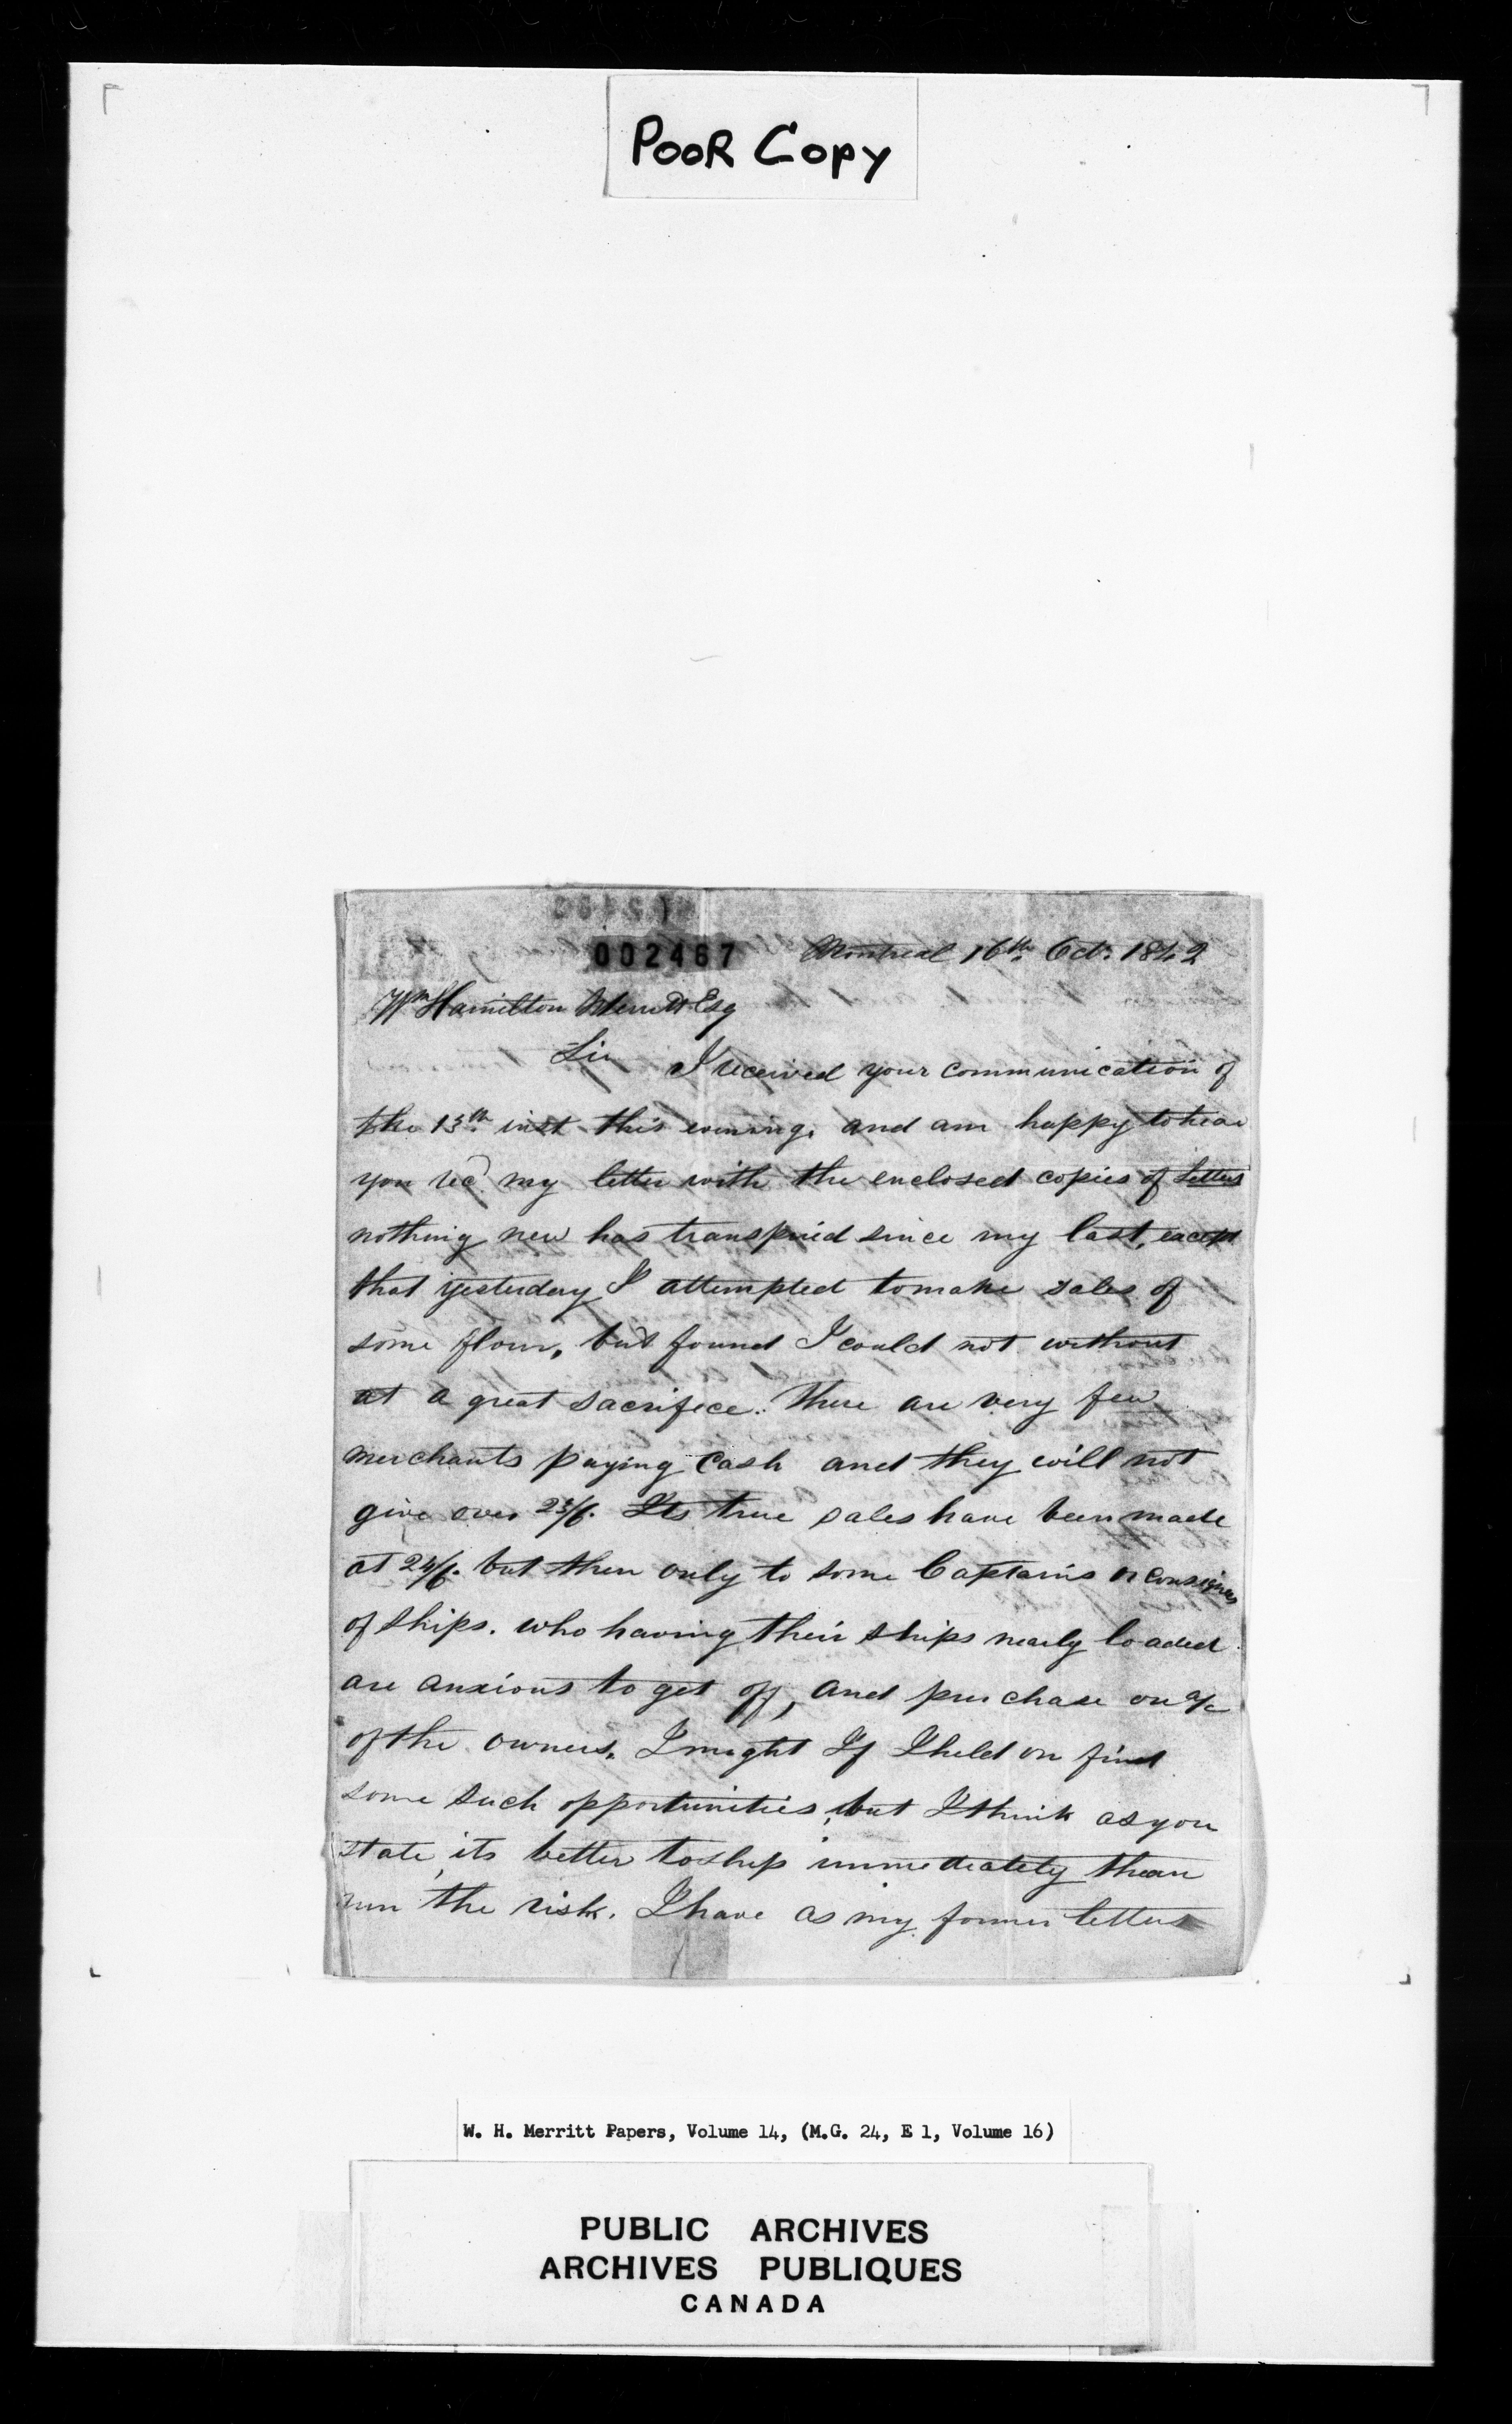 POOR Copy
002467
Montreal 16th Oct. 1842
Wm Hamilton Merritt Esq
Sir I received your communication of
the 13th inst this evening. and am happy to hear
you recd. my letter with the enclosed copies of Letters
nothing new has transpired since my last, except
that yesterday I attempted to make sales of
some flour, but found I could not without
at a great sacrifece. There are very few
merchants paying Cash and they will not
give over 23/6. Its true sales have been made
at 24/6. but then only to some Captains or consignees
of ships. who having their ships nearly loaded
are anxious to get off, and purchase on a/c
of the owners. I might If I held on find
some such opportunities, but I think as you
state, its better to ship immediately than
run the risk. I have as my former letters
W. H. Merritt Papers, Volume 14, (M.G. 24, E 1, Volume 16)
PUBLIC ARCHIVES
ARCHIVES PUBLIQUES
CANADA